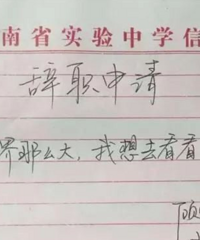 南省实验中学信
辞职申请
界那么大,我想去看看
顾